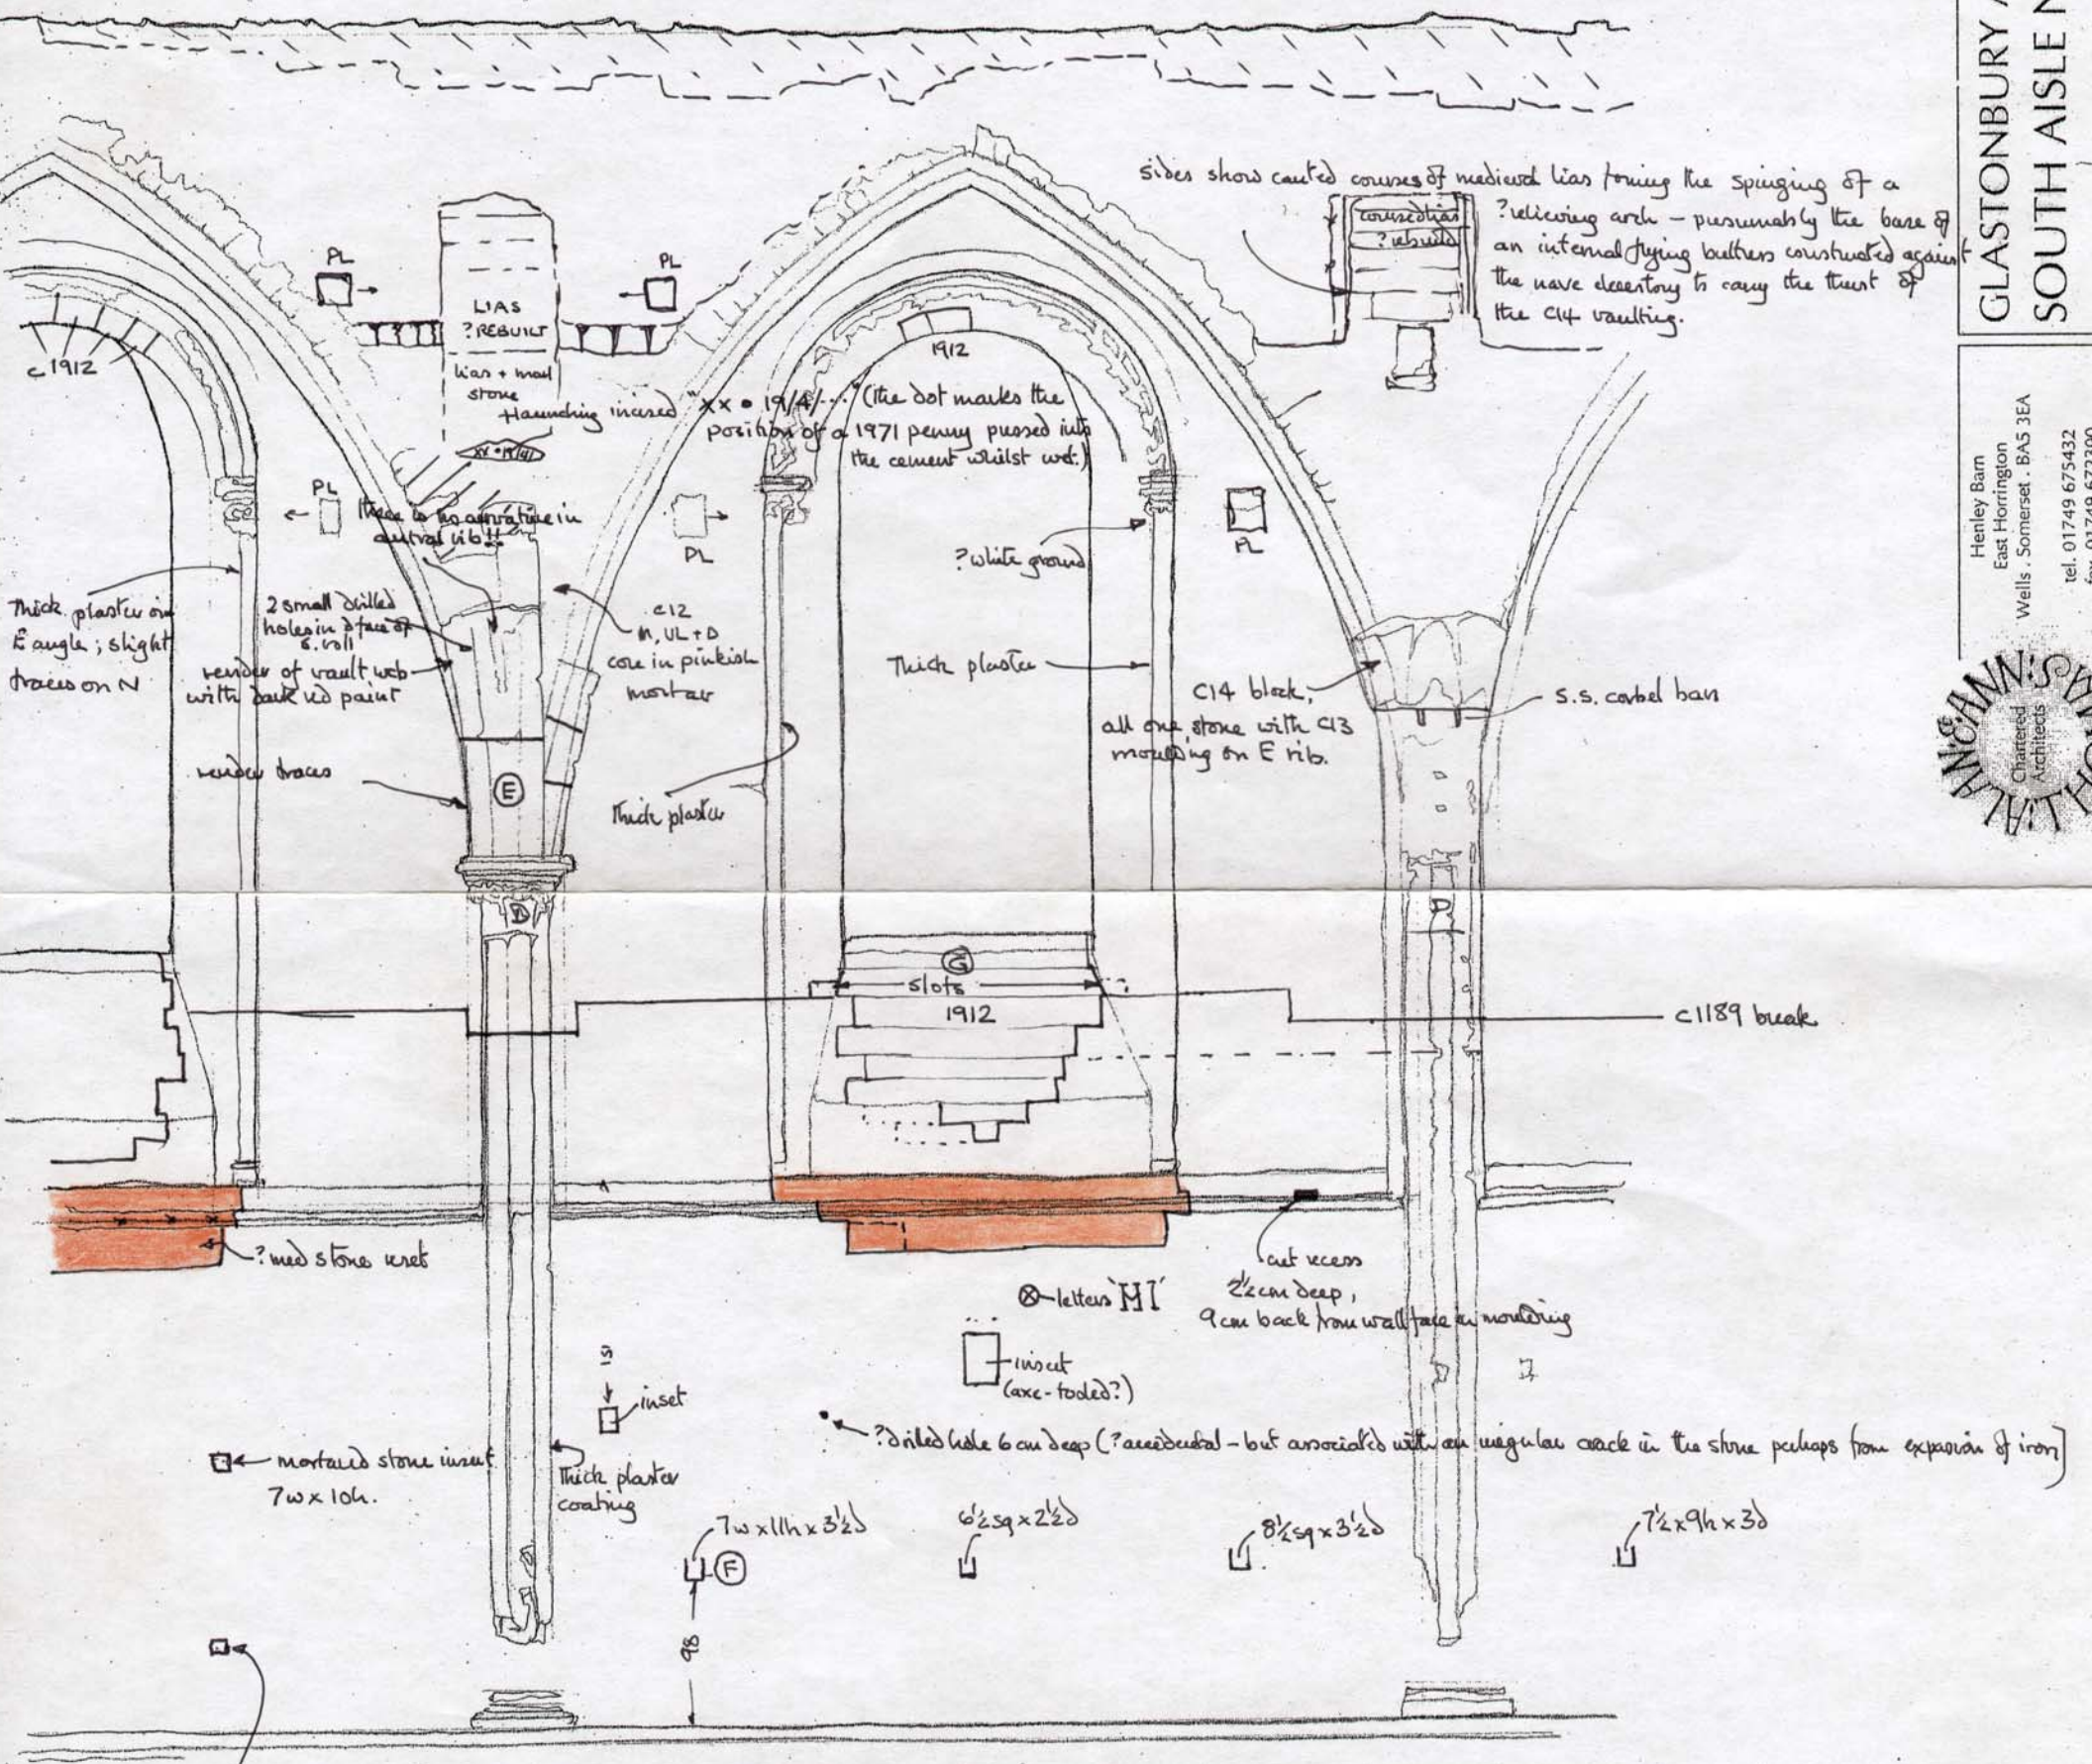 GLASTONBURY
SOUTH AISLE
Henley Barn
East Horrington
Wells . Somerset . BA5 3EA
tel. 01749 675432
fax. 01749 672300
ALAN & ANN
THOM
Chartered
Architects
sides show canted courses of medieval lias forming the springing of a
?relieving arch – presumably the base of
an internal flying buttress constructed against
the nave clerestory to carry the thrust of
the C14 vaulting.
coursed lias
?rebuild
PL
PL
LIAS
?REBUILT
lias + med
stone
c 1912
1912
Haunching incised "XX • 19/4/..." (the dot marks the
position of a 1971 penny pressed into
the cement whilst wet.)
XX • 19/4/
PL
there is no curvature in
central rib!!
PL
PL
?white ground
Thick plaster on
E angle; slight
traces on N
2 small drilled
holes in face of
roll
render of vault web
with dark red paint
c12
UL + D
core in pinkish
mortar
Thick plaster
C14 block,
all one stone with C13
moulding on E rib.
S.S. corbel bars
render traces
E
thick plaster
D
D
G
slots
1912
c1189 break
?med stone reset
cut recess
2½cm deep,
9cm back from wall face in moulding
letters 'MI'
15
inset
insert
(axe-tooled?)
?drilled hole 6cm deep (?accidental – but associated with an irregular crack in the stone perhaps from expansion of iron)
mortared stone insert
7w x 10h.
Thick plaster
coating
7w x 11h x 3½d
6½sq x 2½d
8½sq x 3½d
7½ x 9h x 3d
F
98